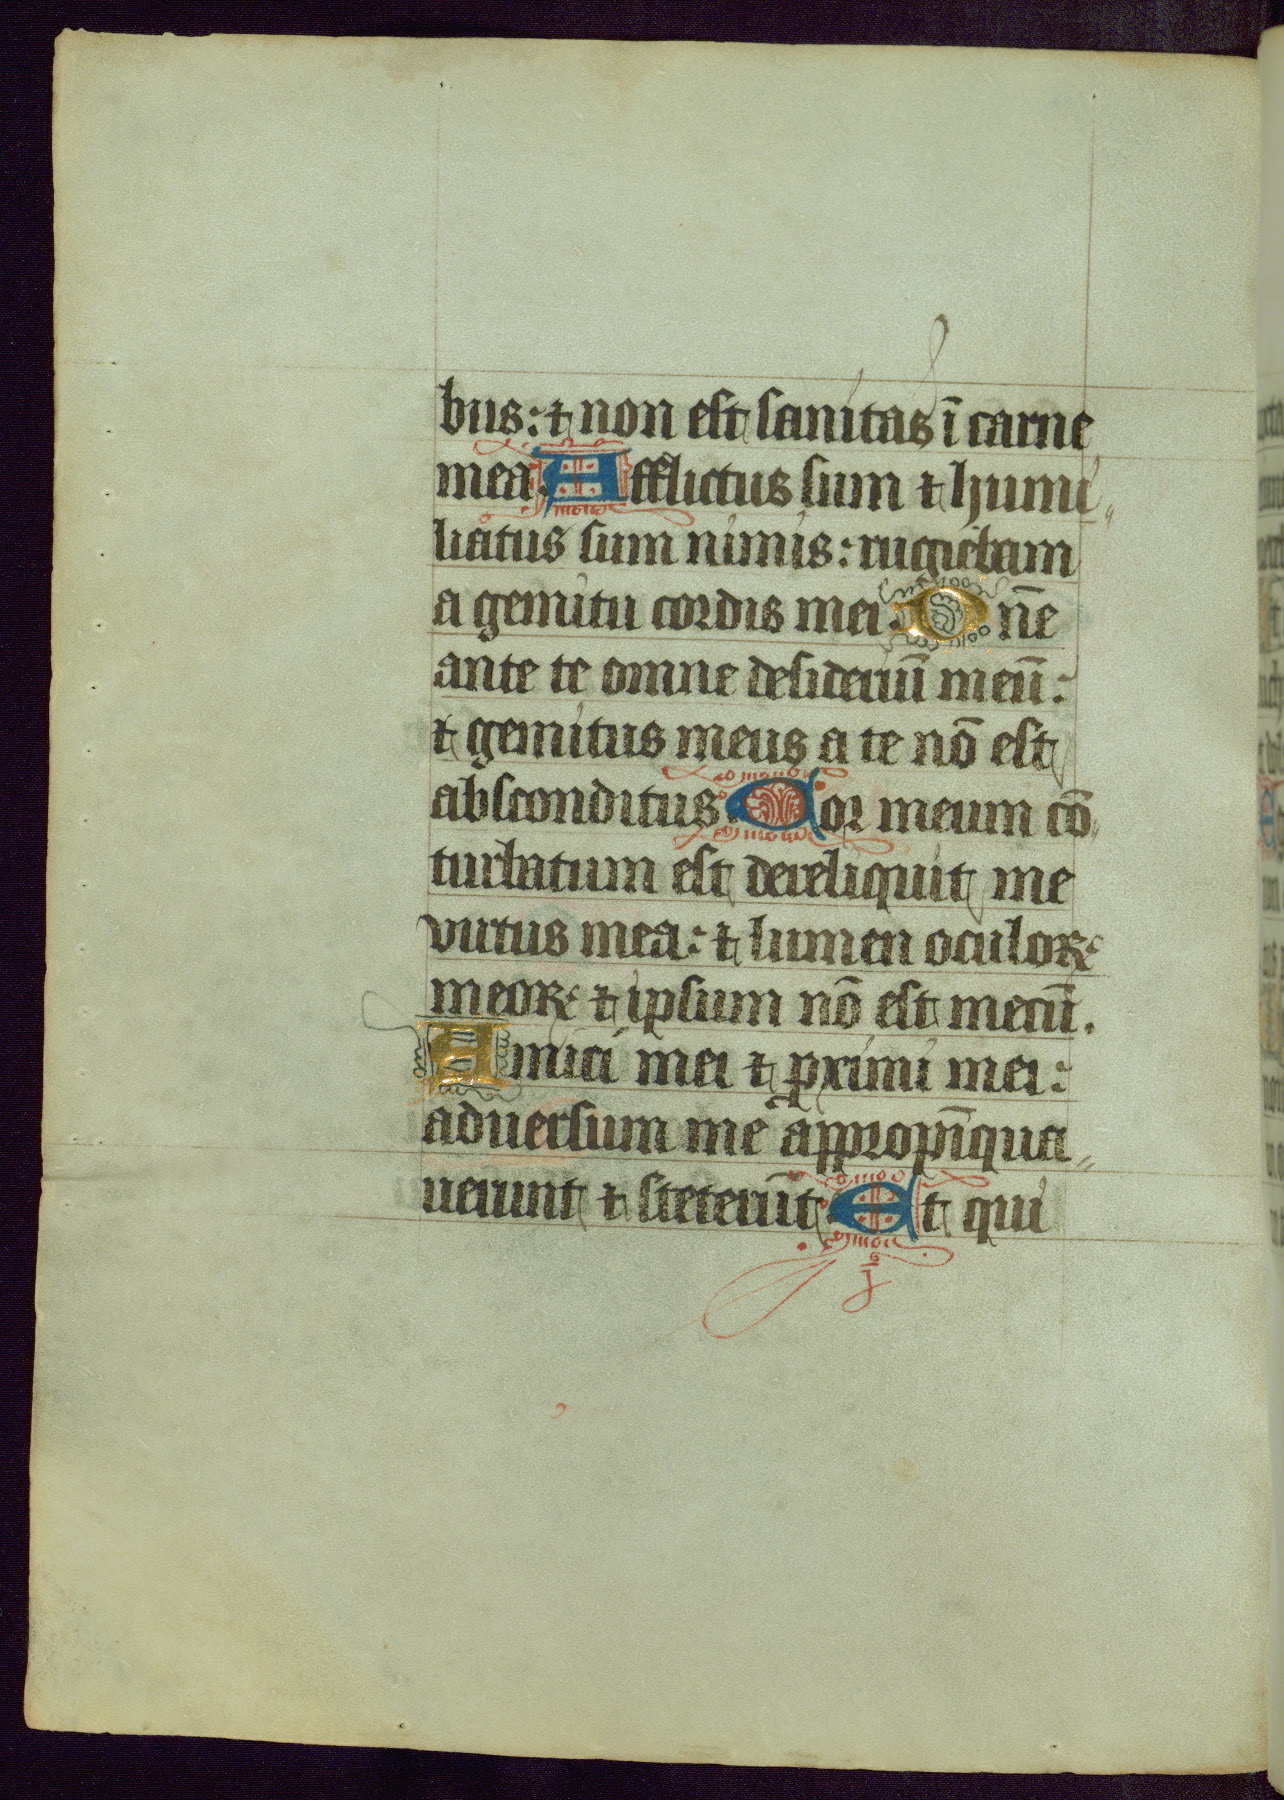 bus: ⁊ non est sanitas ī carne
mea. Afflictus sum ⁊ humi„
liatus sum nimis: rugiebam
a gemitu cordis mei. Dn̄e
ante te omne desideriū meū:
⁊ gemitus meus a te nō est
absconditus. Cor meum cō„
turbatum est dereliquit me
virtus mea: ⁊ lumen oculoꝝ
meoꝝ ⁊ ipsum nō est mecū.
Amici mei ⁊ ꝓximi mei:
aduersum me appropīqua„
uerunt ⁊ steterūt. Et qui